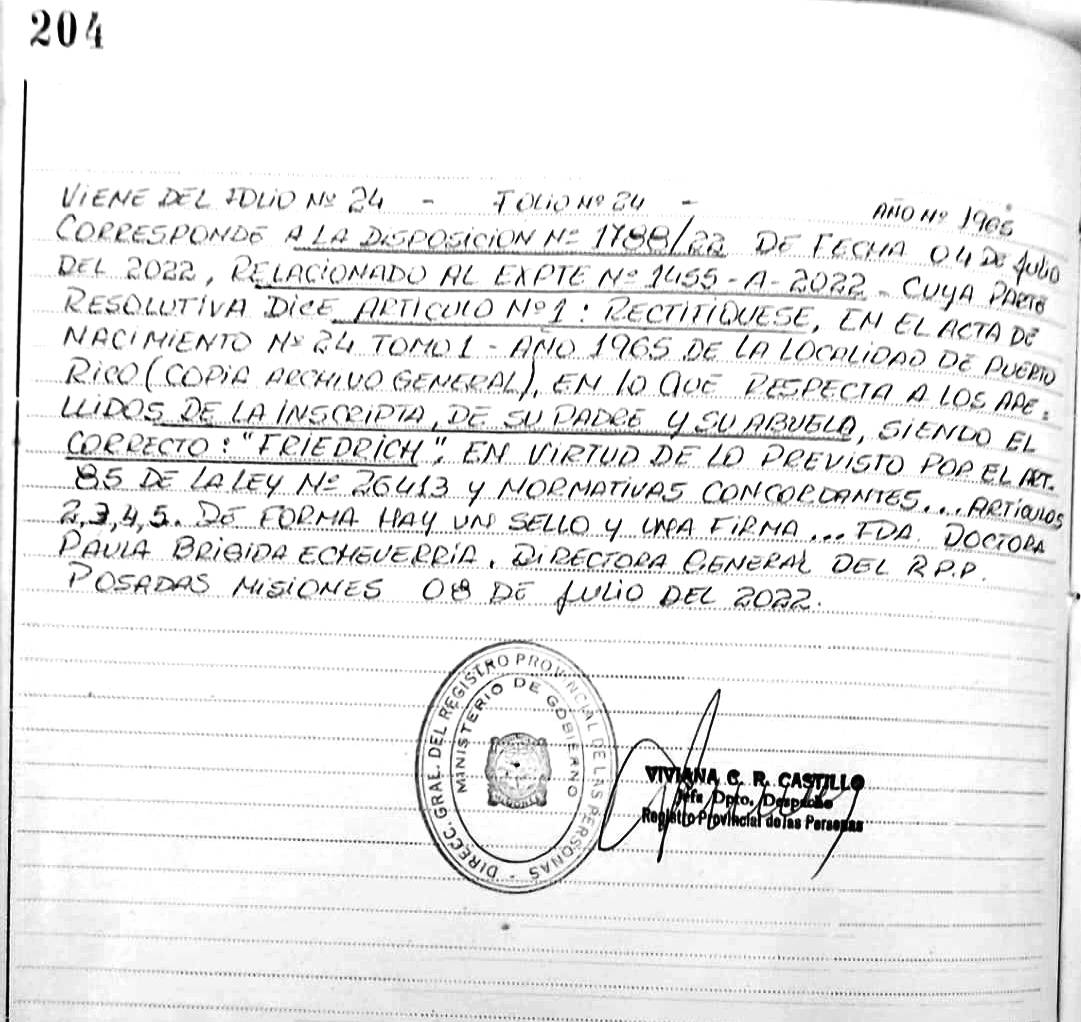 204
VIENE DEL FOLIO Nº 24 - FOLIO Nº 24 - AÑO Nº 1965
CORRESPONDE A LA DISPOSICION Nº 1788/22 DE FECHA 04 DE JULIO
DEL 2022, RELACIONADO AL EXPTE Nº 1455-A-2022 - CUYA PARTE
RESOLUTIVA DICE ARTICULO Nº 1: RECTIFIQUESE, EN EL ACTA DE
NACIMIENTO Nº 24 TOMO 1 - AÑO 1965 DE LA LOCALIDAD DE PUERTO
RICO (COPIA ARCHIVO GENERAL), EN LO QUE RESPECTA A LOS APE=
LLIDOS DE LA INSCRIPTA, DE SU PADRE Y SU ABUELA, SIENDO EL
CORRECTO: "FRIEDRICH", EN VIRTUD DE LO PREVISTO POR EL ART.
85 DE LA LEY Nº 26413 Y NORMATIVAS CONCORDANTES... ARTICULOS
2,3,4,5. DE FORMA HAY UN SELLO Y UNA FIRMA... FDA. DOCTORA
PAULA BRIGIDA ECHEVERRIA. DIRECTORA GENERAL DEL R.P.P.
POSADAS MISIONES 08 DE JULIO DEL 2022.
DIREC. GRAL. DEL REGISTRO PROVINCIAL DE LAS PERSONAS -
MINISTERIO DE GOBIERNO
VIVIANA C. R. CASTILLO
Jefa Dpto. Despacho
Registro Provincial de las Personas